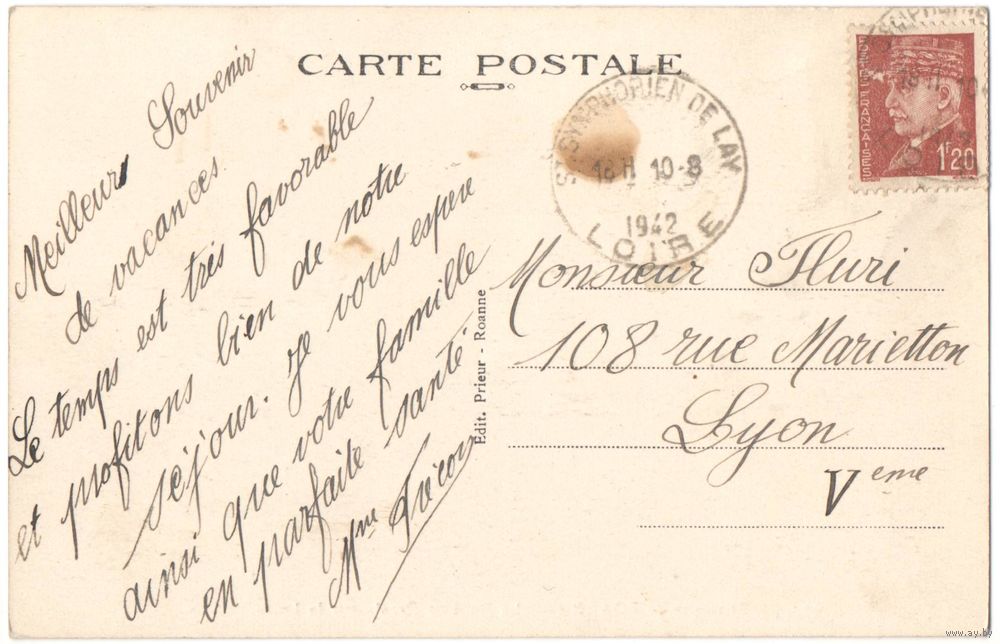 CARTE POSTALE
Meilleurs Souvenir
de vacances.
Le temps est très favorable
et profitons bien de notre
séjour. Je vous espère
ainsi que votre famille
en parfaite santé
Mme
Edit. Prieur - Roanne
ST SYMPHORIEN DE LAY
18H 10-8
1942
LOIRE
POSTES FRANÇAISES
1F20
Monsieur Fluri
108 rue Marietton
Lyon
Veme
www.ay.by